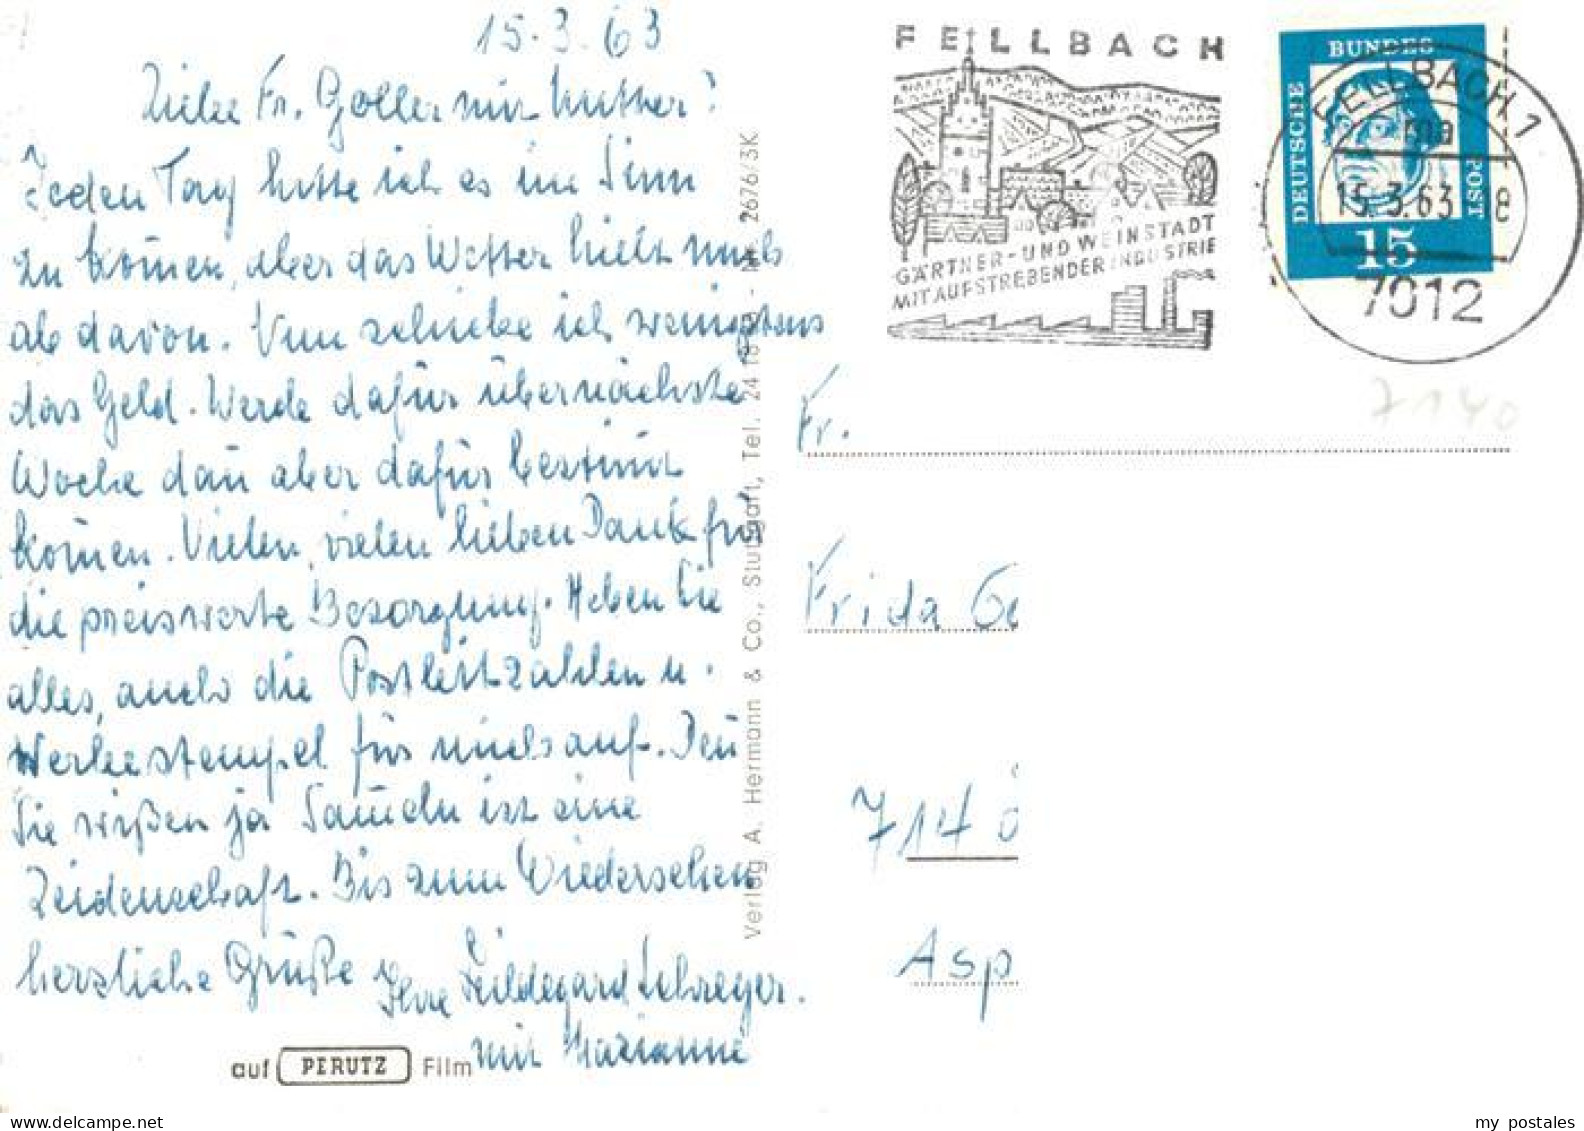 15.3.63
Liebe Fr. Goller mit Mutter!
Jeden Tag hatte ich es im Sinn
zu kom̄en, aber das Wetter hielt mich
ab davon. Nun schicke ich wenigstens
das Geld. Werde dafür übernächste
Woche dan̄ aber dafür bestim̄t
kom̄en. Vielen, vielen lieben Dank für
die preiswerte Besorgung. Heben Sie
alles, auch die Postleitzahlen u.
Werbestempel für mich auf. Den̄
Sie wißen ja Sam̄eln ist eine
Leidenschaft. Bis zum Wiedersehen
herzliche Grüße
Ihre Hildegard Schreyer.
mit Marianne
auf PERUTZ Film
Verlag A. Hermann & Co., Stuttgart, Tel. 24 16 - Nr. 2676/3K
FELLBACH
GÄRTNER- UND WEINSTADT
MIT AUFSTREBENDER INDUSTRIE
DEUTSCHE
BUNDES
POST
15
FELLBACH 1
ma
15.3.63 18
7012
7140
Fr.
Frida Go
714 
Asp
my postales
www.delcampe.net